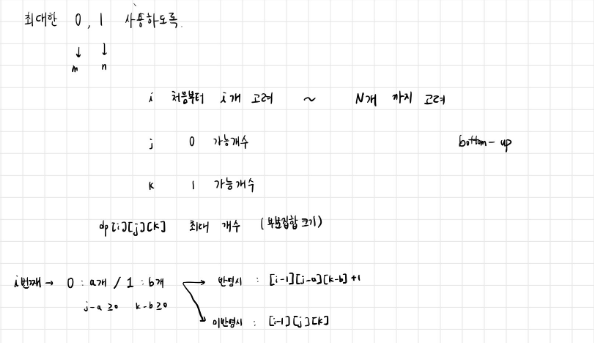 최대한 0, 1 사용하도록.
↓ ↓
m n
i 처음부터 i개 고려 ~ N개 까지 고려
j 0 가능개수 bottom-up
k 1 가능개수
dp[i][j][k] 최대 개수 (부분집합 크기)
i번째 → 0 : a개 / 1 : b개 → 반영시 : [i-1][j-a][k-b]+1
j-a ≥0 k-b≥0
미반영시 : [i-1][j][k]